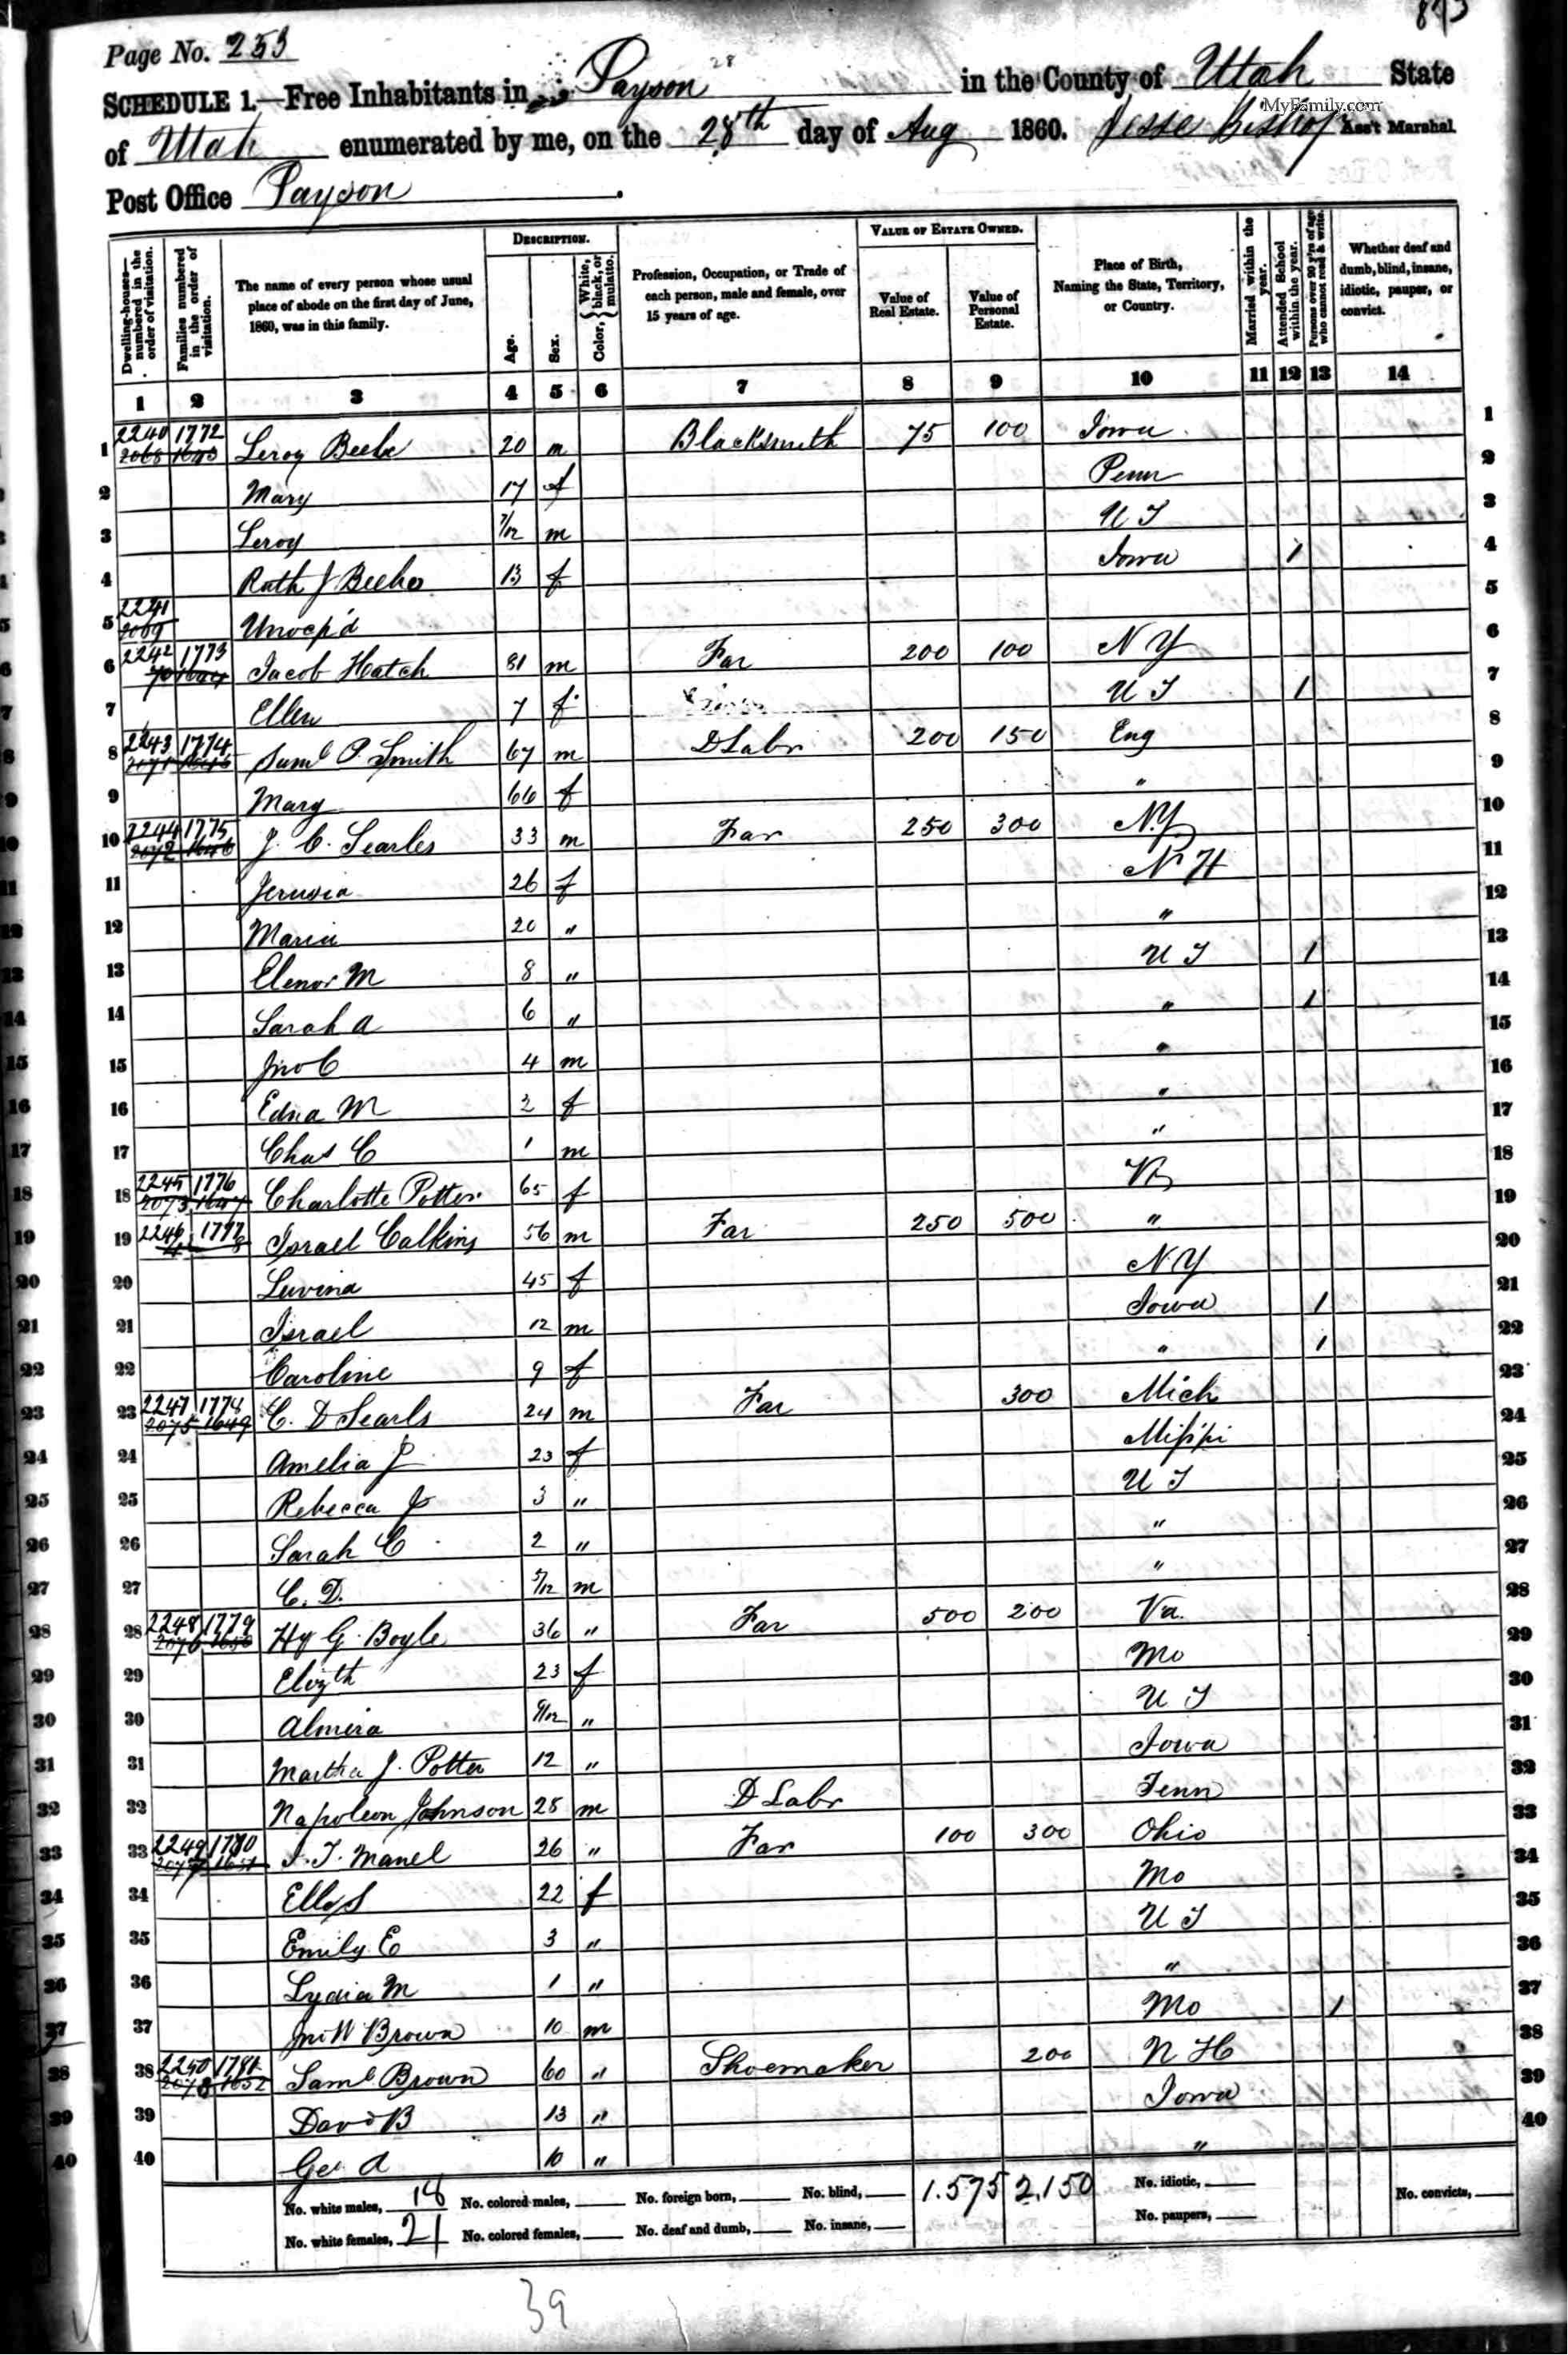 Page No. 253
SCHEDULE 1.—Free Inhabitants in Payson in the County of Utah State
28
MyFamily.com
of Utah enumerated by me, on the 28th day of Aug 1860. Jesse Bishop Ass't Marshal
Post Office Payson.
Dwelling-houses—numbered in the order of visitation.
Families numbered in the order of visitation.
The name of every person whose usual place of abode on the first day of June, 1860, was in this family.
DESCRIPTION.
Age.
Sex.
Color, { White, black, or mulatto.
Profession, Occupation, or Trade of each person, male and female, over 15 years of age.
VALUE OF ESTATE OWNED.
Value of Real Estate.
Value of Personal Estate.
Place of Birth, Naming the State, Territory, or Country.
Married within the year.
Attended School within the year.
Persons over 20 y'rs of age who cannot read & write.
Whether deaf and dumb, blind, insane, idiotic, pauper, or convict.
1 2 3 4 5 6 7 8 9 10 11 12 13 14
1 2240 1772 Leroy Beebe 20 m Blacksmith 75 100 Iowa 1
2 Mary 17 f Penn 2
3 Leroy 7/12 m U T 3
4 Ruth J Beebe 13 f Iowa 1 4
5 2241 2069 Unocp'd 5
6 2242 1773 Jacob Hatch 81 m Far 200 100 N Y 6
7 Ellen 7 f U T 1 7
8 2243 1774 Saml P. Smith 67 m D Labr 200 150 Eng 8
9 Mary 66 f " 9
10 2244 1775 J. C. Searles 33 m Far 250 300 N.Y. 10
11 Jerusia 26 f N H 11
12 Maria 20 " " 12
13 Elenor M 8 " U T 1 13
14 Sarah A 6 " " 1 14
15 Jno C 4 m " 15
16 Edna M 2 f " 16
17 Chas C 1 m " 17
18 2245 1776 2073 1647 Charlotte Potter 65 f 18
19 2246 1777 Israel Calkins 56 m Far 250 500 " 19
20 Luvina 45 f N.Y 20
21 Israel 12 m Iowa 1 21
22 Caroline 9 f " 1 22
23 2247 1778 2075 1649 C. D Searls 24 m Far 300 Mich 23
24 Amelia J 23 f Mifsippi 24
25 Rebecca J 3 " U T 25
26 Sarah C 2 " " 26
27 C. D. 5/12 m " 27
28 2248 1779 2076 1650 Hy G. Boyle 36 " Far 500 200 Va. 28
29 Elizth 23 f Mo 29
30 Almira " U T 30
31 Martha J. Potter 12 " Iowa 31
32 Napoleon Johnson 28 m D Labr Tenn 32
33 2249 1780 2077 1651 Manel 26 " Far 100 300 Ohio 33
34 22 f Mo 34
35 Emily E 3 " U T 35
36 Lydia M 1 " " 36
37 Jno W Brown 10 m Mo 1 37
38 2250 1781 2078 1652 Saml Brown 60 " Shoemaker 200 N H 38
39 David B 13 " Iowa 39
40 Geo A 10 " " 40
No. white males, 18 No. colored males, No. foreign born, No. blind, 1.575 2,150 No. idiotic, No. convicts,
No. white females, 21 No. colored females, No. deaf and dumb, No. insane, No. paupers,
39